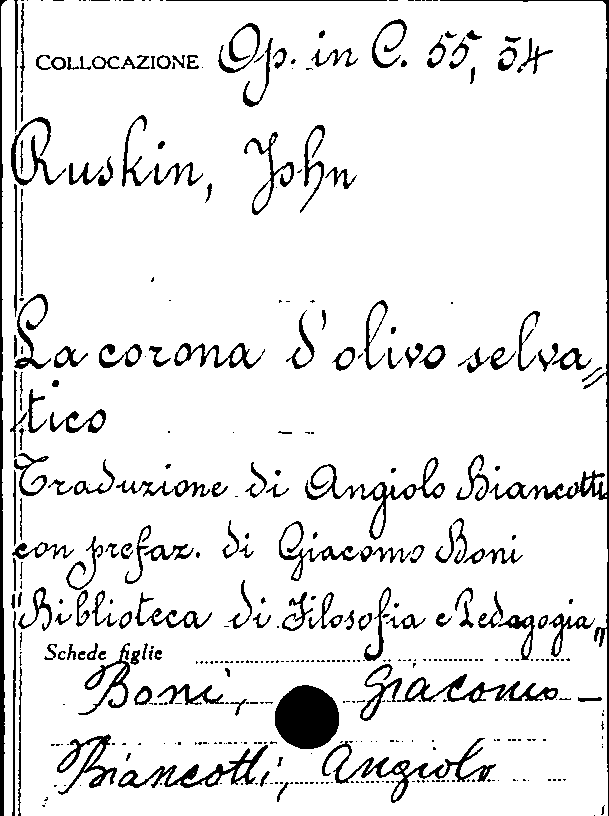 COLLOCAZIONE Op. in C. 55, 54
Ruskin, John
La corona d'olivo selva=
tico
Traduzione di Angiolo Biancotti
con prefaz. di Giacomo Boni
"Biblioteca di Filosofia e Pedagogia"
Schede figlie
Boni, Giacomo -
Biancotti, Angiolo